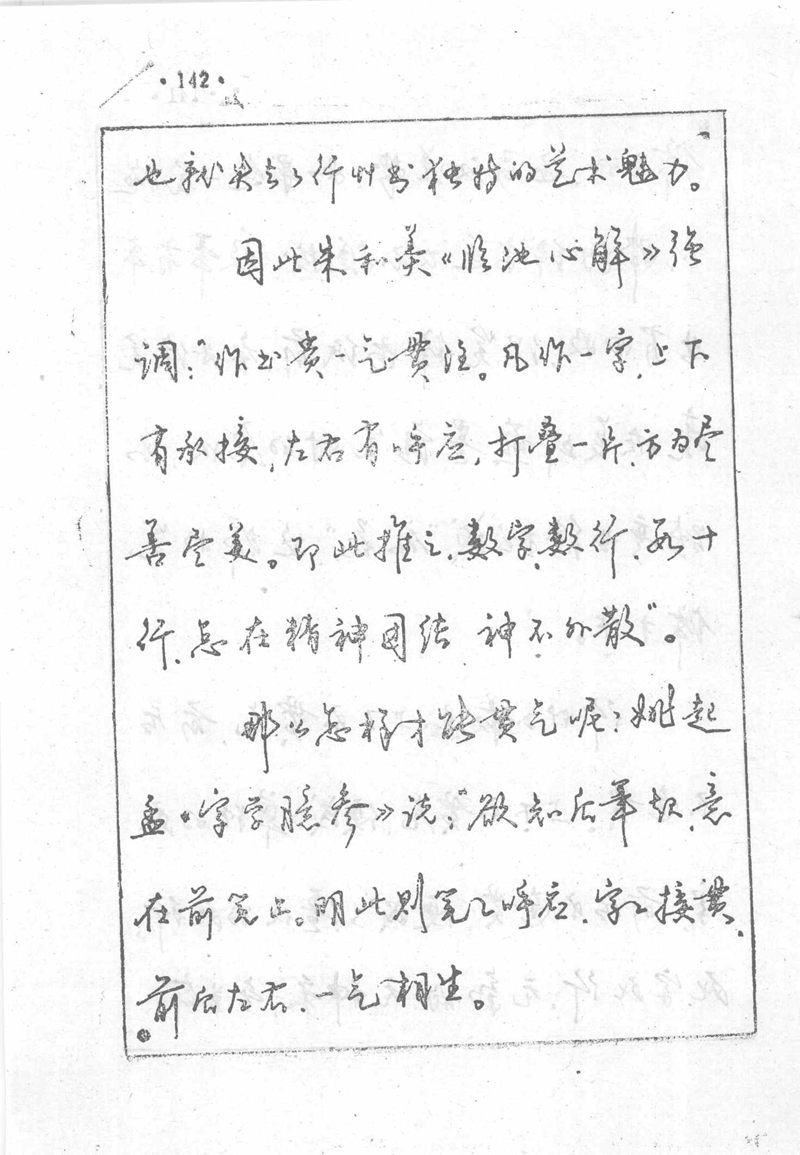 ·142·
也就失去了行草书独特的艺术魅力。
因此朱和羹《临池心解》强
调:"作书贵一气贯注。凡作一字,上下
有承接,左右有呼应,打叠一片,方为尽
善尽美。即此推之,数字、数行、数十
行,总在精神团结 神不外散"。
那么怎样才能贯气呢?姚孟起
《字学臆参》说:"欲知后笔起,意
在前笔止。明此则笔笔呼应,字字接贯,
前后左右,一气相生。